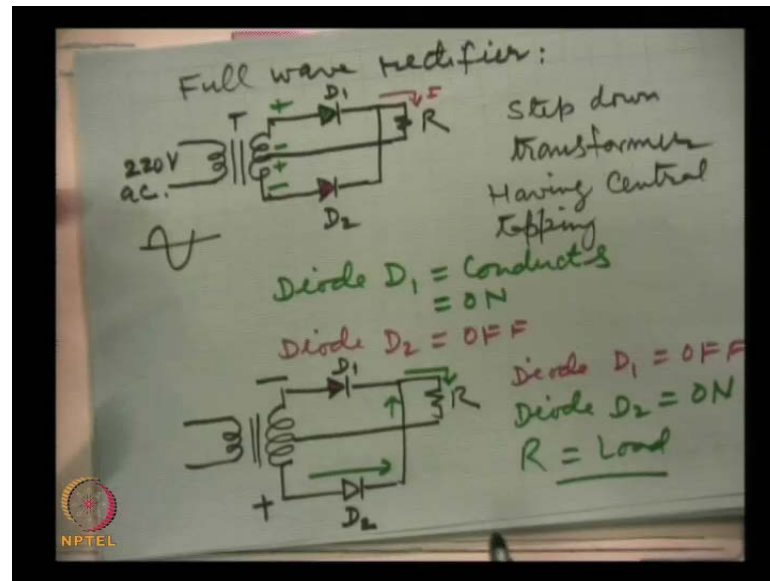 Full wave rectifier:
T
D1
I
R
220V
a.c.
+
-
+
-
D2
Step down
transformer
Having Central
tapping
Diode D1 = Conducts
= ON
Diode D2 = OFF
-
D1
R
+
D2
Diode D1 = OFF
Diode D2 = ON
R = Load
NPTEL